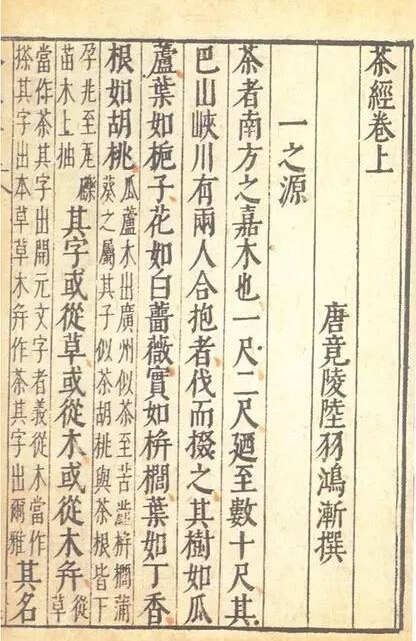 茶經卷上
唐竟陵陸羽鴻漸撰
一之源
茶者南方之嘉木也一尺二尺廼至數十尺其
巴山峽川有兩人合抱者伐而掇之其樹如瓜
蘆葉如梔子花如白薔薇實如栟櫚葉如丁香
根如胡桃瓜蘆木出廣州似茶至苦澁栟櫚蒲葵之屬其子似茶胡桃與茶根皆下
孕兆至瓦礫苗木上抽其字或從草或從木或從木并從草
當作茶其字出開元文字者義從木當作搽其字出本草草木并作茶其字出爾雅其名